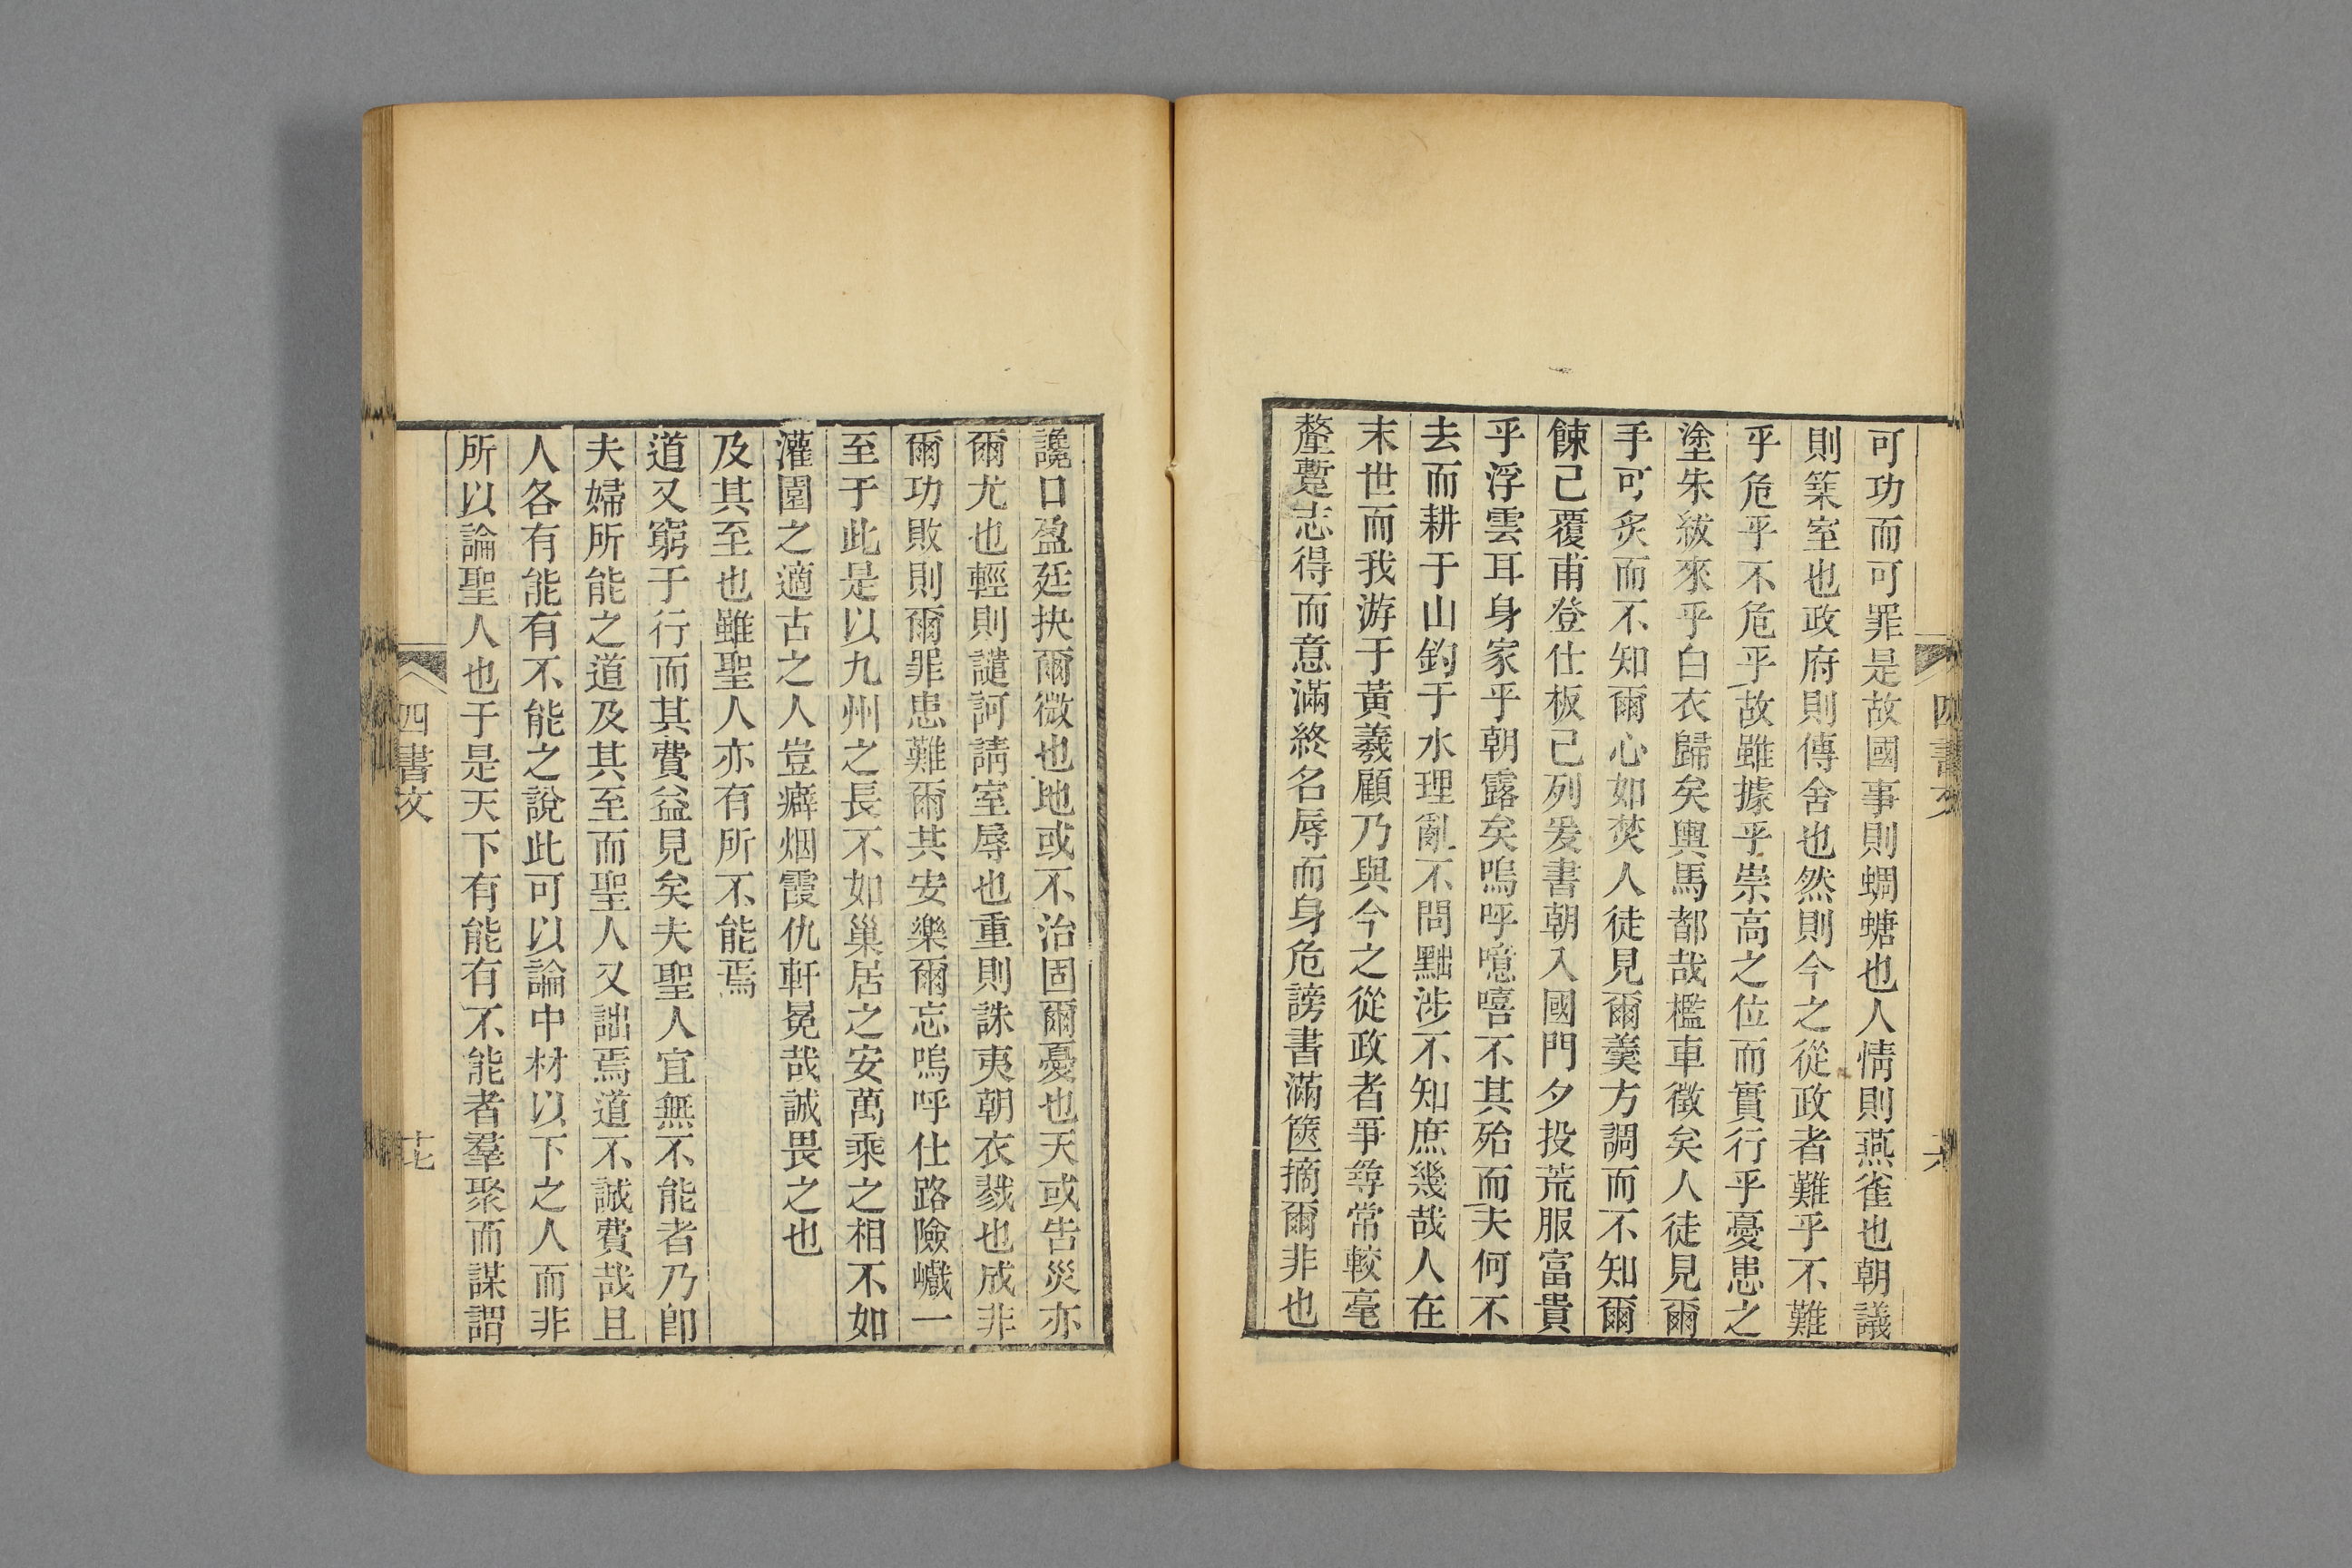 可功而可罪是故國事則蜩螗也人情則燕雀也朝議
則築室也政府則傳舍也然則今之從政者難乎不難
乎危乎不危乎故雖據乎崇高之位而實行乎憂患之
塗朱紱來乎白衣歸矣輿馬都哉檻車徵矣人徒見爾
手可炙而不知爾心如焚人徒見爾羹方調而不知爾
餗已覆甫登仕板已列爰書朝入國門夕投荒服富貴
乎浮雲耳身家乎朝露矣嗚呼噫嘻不其殆而夫何不
去而耕于山釣于水理亂不問黜涉不知庶幾哉人在
末世而我游于黃羲顧乃與今之從政者爭尋常較毫
釐蹔志得而意滿終名辱而身危謗書滿篋摘爾非也
讒口盈廷抉爾微也地或不治固爾憂也天或告災亦
爾尤也輕則譴訶請室辱也重則誅夷朝衣戮也成非
爾功敗則爾罪患難爾其安樂爾忘嗚呼仕路險巇一
至于此是以九州之長不如巢居之安萬乘之相不如
灌園之適古之人豈癖烟霞仇軒冕哉誠畏之也
及其至也雖聖人亦有所不能焉
道又窮于行而其費益見矣夫聖人宜無不能者乃卽
夫婦所能之道及其至而聖人又詘焉道不誠費哉且
人各有能有不能之說此可以論中材以下之人而非
所以論聖人也于是天下有能有不能者羣聚而謀謂
四書文
廿七